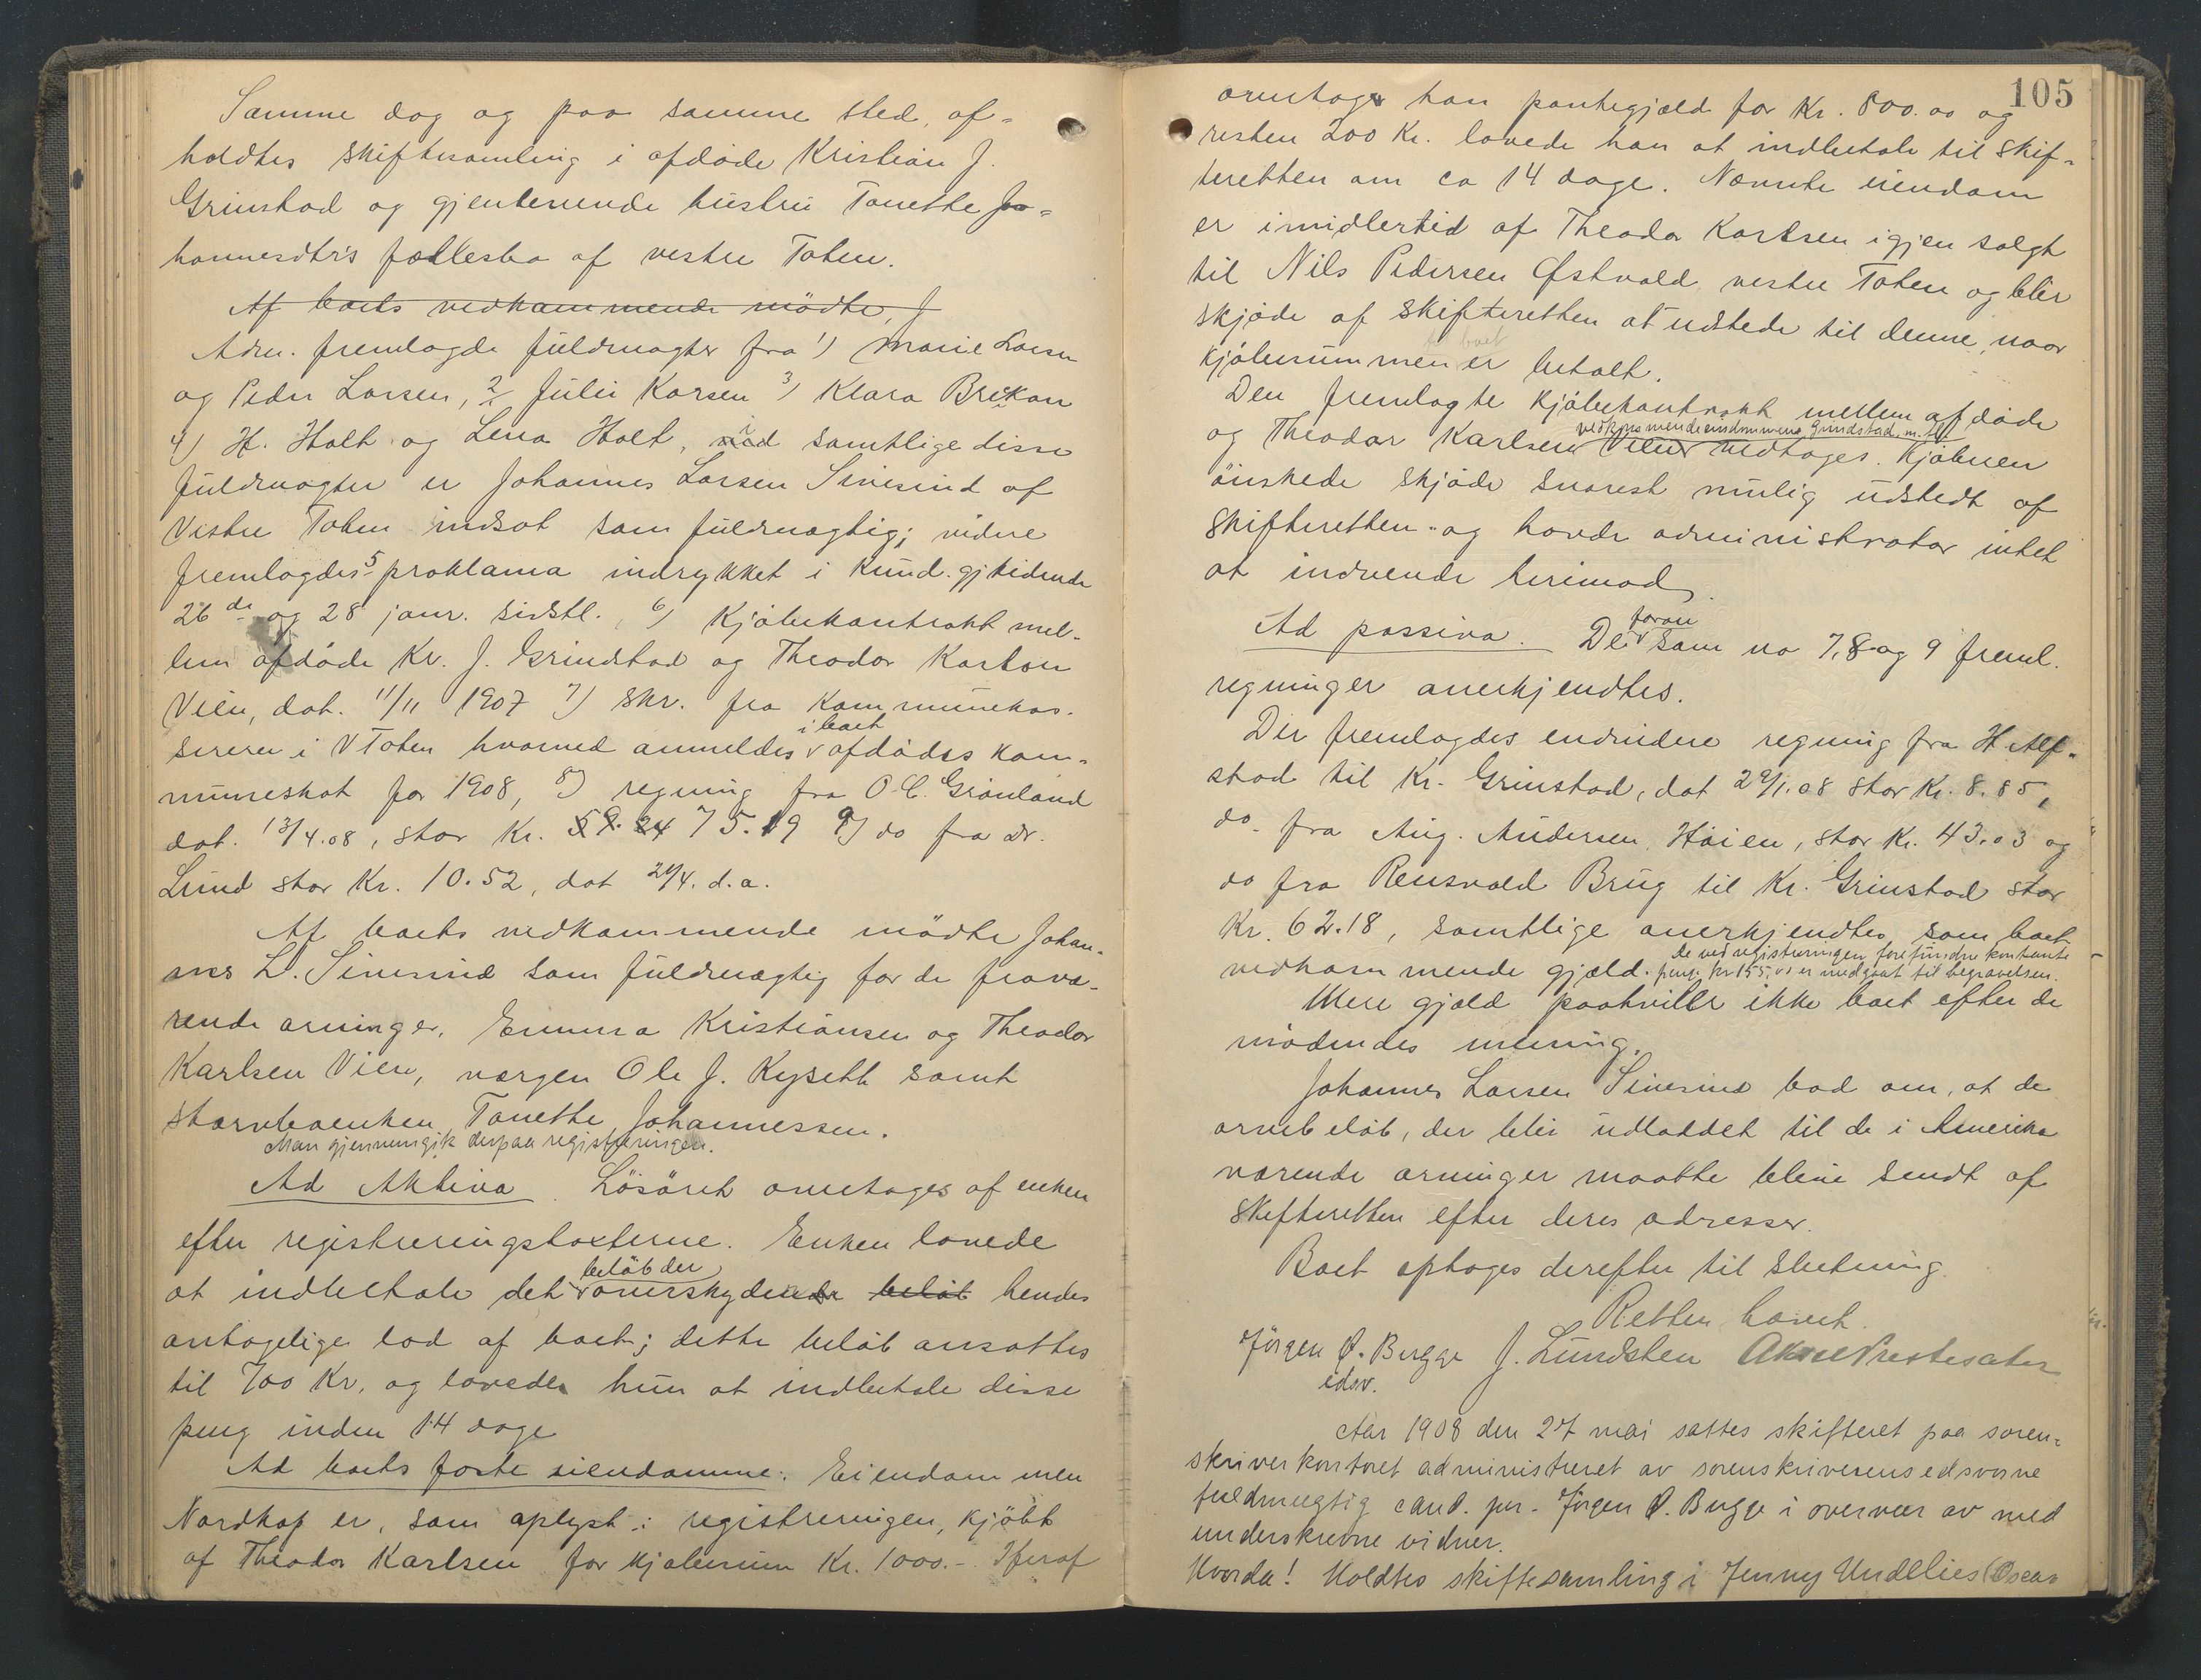 Samme dag og paa samme sted, af-
holdtes skiftesamling i afdöde Kristian J.
Grinstad og gjenlevende hustru Tonette Jo-
hannesdtr's fællesbo af vestre Toten.
Af boets vedkommende mödte, J
Adm. fremlagde fuldmagter fra 1) Marie Larsen
og Peder Larsen, 2/ Julie Karsen 3) Klara Brekan
4) H. Holt og Lena Holt, i samtlige disse
fuldmagter er Johannes Larsen Sivesind af
Vestre Toten indsat som fuldmægtig; videre
fremlagdes 5 proklama indrykket i Kund.gjtidende
26 de og 28 janr. sidstl., 6) Kjöbekontrakt mel-
lem afdöde Kr. J. Grindstad og Theodor Karlsen
Vien, dat. 11/11 1907 7) skr. fra Kommunekas-
sereren i V Toten hvormed anmeldes i boet afdödes kom-
muneskat for 1908, 8) regning fra O. C. Grönland
dat. 13/4.08, stor Kr. 75.19 9) do fra dr.
Lund stor Kr. 10.52, dat 24/4. d.a.
Af boets vedkommende mödte Johan-
nes L. Sivesind som fuldmægtig for de fravæ-
rende arvinger, Emma Kristiansen og Theodor
Karlsen Vien, værgen Ole J. Kyseth samt
stervboenken Tonette Johannessen.
Man gjennemgik derpaa registreringen.
Ad Aktiva. Lösöret overtages af enken
efter registreringstaxterne. Enken lovede
at indbetale det beløb der overskyder beløb hendes
antagelige lod af boet; dette beløb ansattes
til 700 Kr, og lovede hun at indbetale disse
peng inden 14 dage
Ad boets faste eiendomme. Eiendommen
Nordkap er, som oplyst i registreringen, kjöbt
af Theodor Karlsen for kjøbesum Kr. 1000.- Heraf
105
overtager han pantegjæld for Kr. 800.00 og
resten 200 Kr. lovede han at indbetale til skif-
teretten om ca 14 dage. Nævnte eiendom
er imidlertid af Theodor Karlsen igjen solgt
til Nils Pedersen Østvold, vestre Toten og blir
skjöde af skifteretten at udstede til denne, naar
kjöbesummen er betalt.
Den fremlagte kjöbekontrakt mellem afdöde
og Theodor Karlsen Vien vedkommende eiendommene Grindstad m. fl. vedtages. Kjöberen
önskede skjöde snarest mulig udstedt af
skifteretten og havde administrator intet
at indvende herimod.
Ad passiva. De foran som no 7, 8 og 9 freml.
regninger anerkjendtes.
Der fremlagdes endvidere regning fra H Alf-
stad til Kr. Grinstad, dat 29/1.08 stor Kr. 8.85,
do. fra Aug. Andersen, Höien, stor Kr. 43.03 og
do fra Rensvold Brug til Kr. Grinstad stor
Kr. 62.18, samtlige anerkjendtes som boet
vedkommende gjæld. De ved registreringen forefundne kontante
penge kr 155,00 er medgaat til begravelsen.
Mere gjæld paahviler ikke boet efter de
mödendes mening.
Johannes Larsen Sivesind bad om, at de
arvebelöb, der blir udloddet til de i Amerika
værende arvinger maatte blive sendt af
skifteretten efter deres adresser.
Boet optages derefter til slutning.
Retten hævet.
Jörgen Ø. Bugge J. Lundsten
edsv.
Aar 1908 den 27 mai sattes skifteret paa soren-
skriverkontoret administreret av sorenskriverens edsvorne
fuldmægtig cand. jur. Jörgen Ø. Bugge i overvær av med
underskrevne vidner.
Hvorda! Holdtes skiftesamling i Jenny Undelies (Oscar